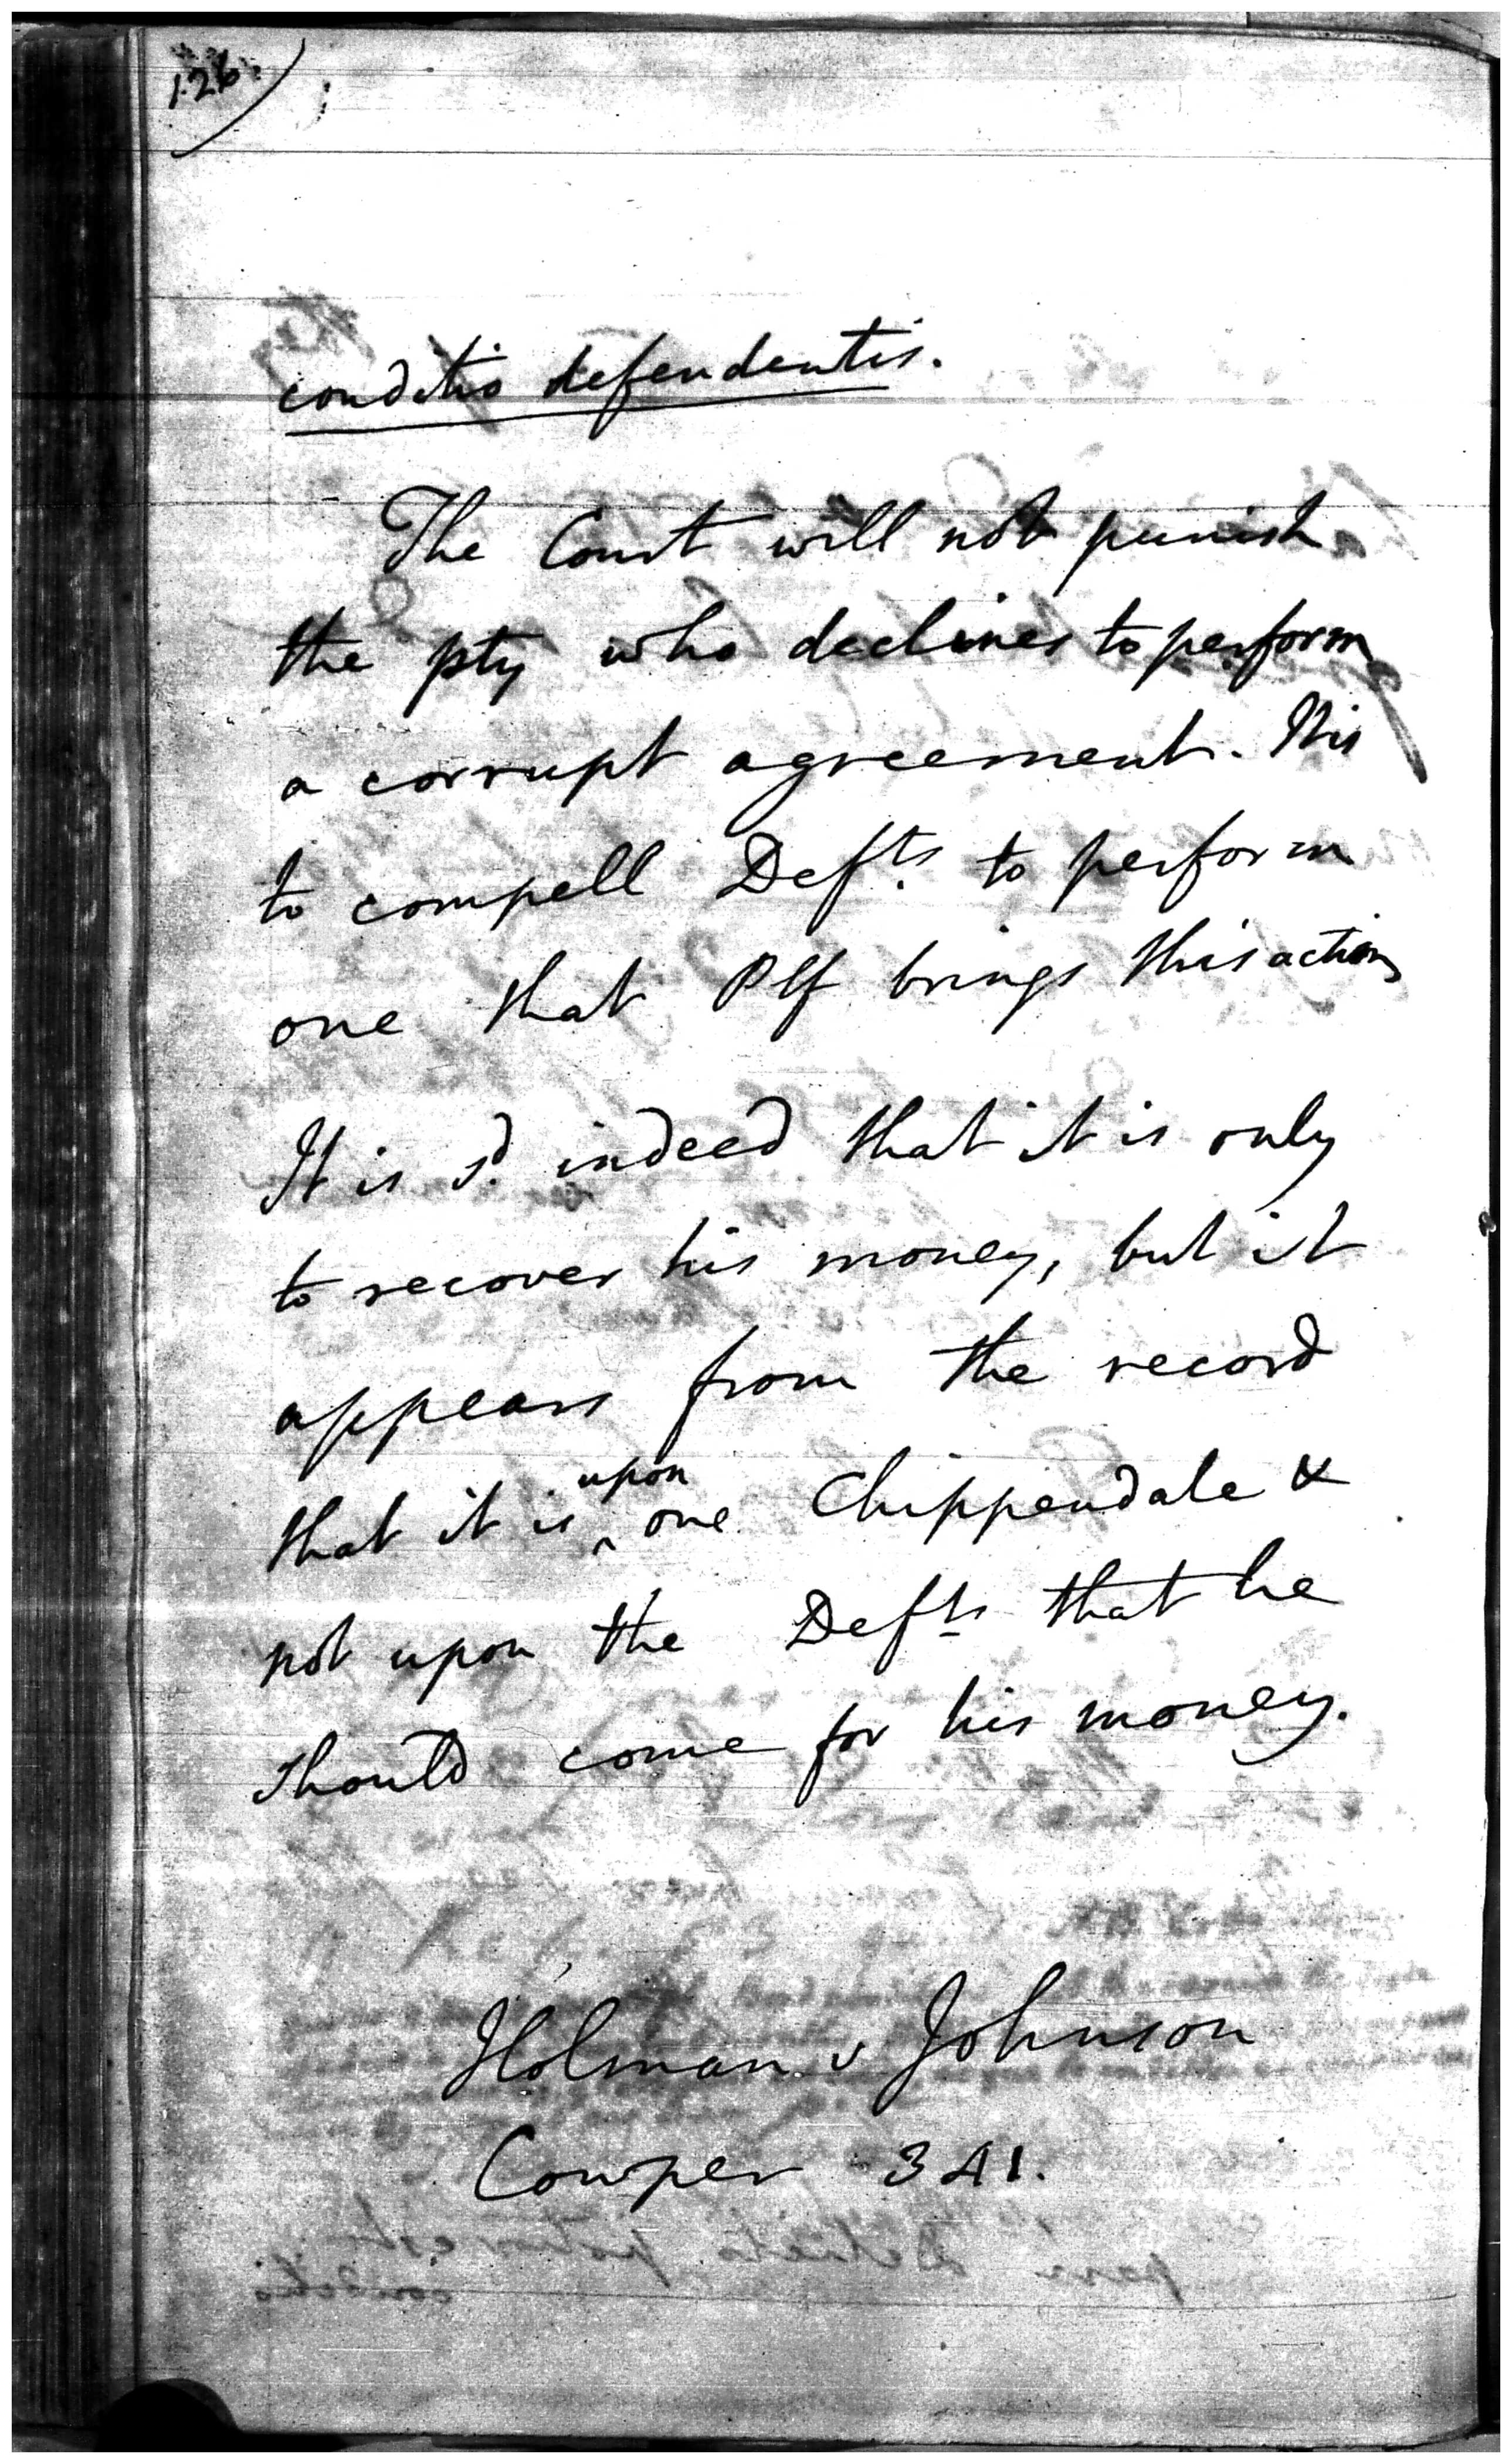 126.
conditio defendentis.
The Court will not punish
the pty who declines to perform
a corrupt agreement. Tis
to compell Defts. to perform
one that Plf brings this action
It is sd. indeed that it is only
to recover his money, but it
appears from the record
that it is ^upon one Chippendale &
not upon the Defts that he
should come for his money.
Holman v Johnson
Cowper 341.